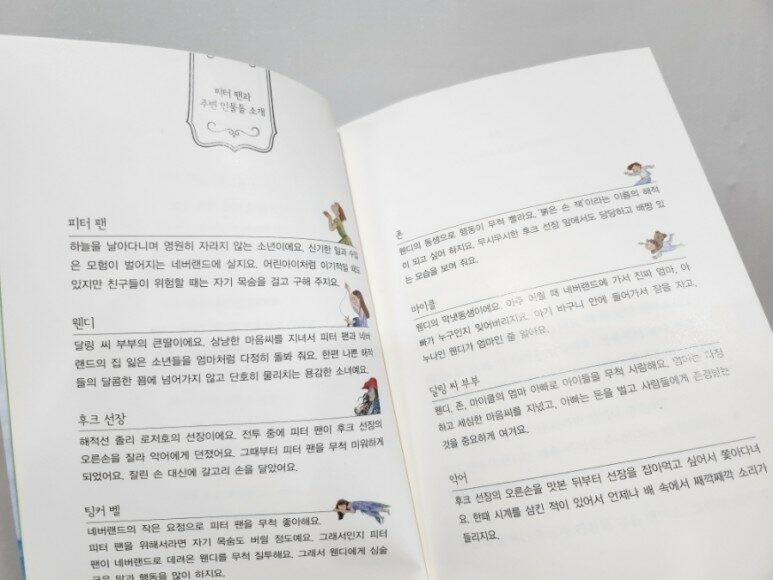 피터 팬과
주변 인물들 소개
피터 팬
하늘을 날아다니며 영원히 자라지 않는 소년이에요. 신기한 일과 수많
은 모험이 벌어지는 네버랜드에 살지요. 어린아이처럼 이기적일 때도
있지만 친구들이 위험할 때는 자기 목숨을 걸고 구해 주지요.
웬디
달링 씨 부부의 큰딸이에요. 상냥한 마음씨를 지녀서 피터 팬과 네버
랜드의 집 잃은 소년들을 엄마처럼 다정히 돌봐 줘요. 한편 나쁜 해적
들의 달콤한 꾐에 넘어가지 않고 단호히 물리치는 용감한 소녀예요.
후크 선장
해적선 졸리 로저호의 선장이에요. 전투 중에 피터 팬이 후크 선장의
오른손을 잘라 악어에게 던졌어요. 그때부터 피터 팬을 무척 미워하게
되었어요. 잘린 손 대신에 갈고리 손을 달았어요.
팅커 벨
네버랜드의 작은 요정으로 피터 팬을 무척 좋아해요.
피터 팬을 위해서라면 자기 목숨도 버릴 정도예요. 그래서인지 피터
팬이 네버랜드로 데려온 웬디를 무척 질투해요. 그래서 웬디에게 심술
궂은 말과 행동을 많이 하지요.
존
웬디의 동생으로 행동이 무척 빨라요. '붉은 손 잭'이라는 이름의 해적
이 되고 싶어 하지요. 무시무시한 후크 선장 앞에서도 당당하고 배짱 있
는 모습을 보여 줘요.
마이클
웬디의 막냇동생이에요. 아주 어릴 때 네버랜드에 가서 진짜 엄마, 아
빠가 누구인지 잊어버리지요. 아기 바구니 안에 들어가서 잠을 자고,
누나인 웬디가 엄마인 줄 알아요.
달링 씨 부부
웬디, 존, 마이클의 엄마 아빠로 아이들을 무척 사랑해요. 엄마는 다정
하고 세심한 마음씨를 지녔고, 아빠는 돈을 벌고 사람들에게 존경받는
것을 중요하게 여겨요.
악어
후크 선장의 오른손을 맛본 뒤부터 선장을 잡아먹고 싶어서 쫓아다녀
요. 한때 시계를 삼킨 적이 있어서 언제나 배 속에서 째깍째깍 소리가
들리지요.